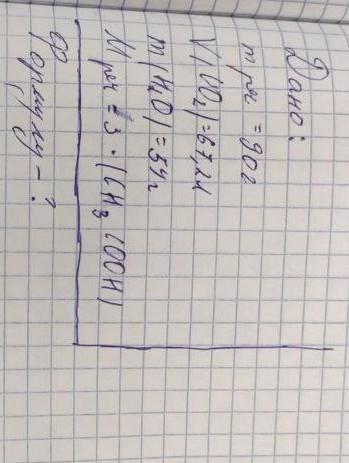 Дано:
m р-ч = 90г
V(CO₂) = 67,2л
m(H₂O) = 54г
M р-ч = 3 · (CH₃COOH)
Формулу - ?